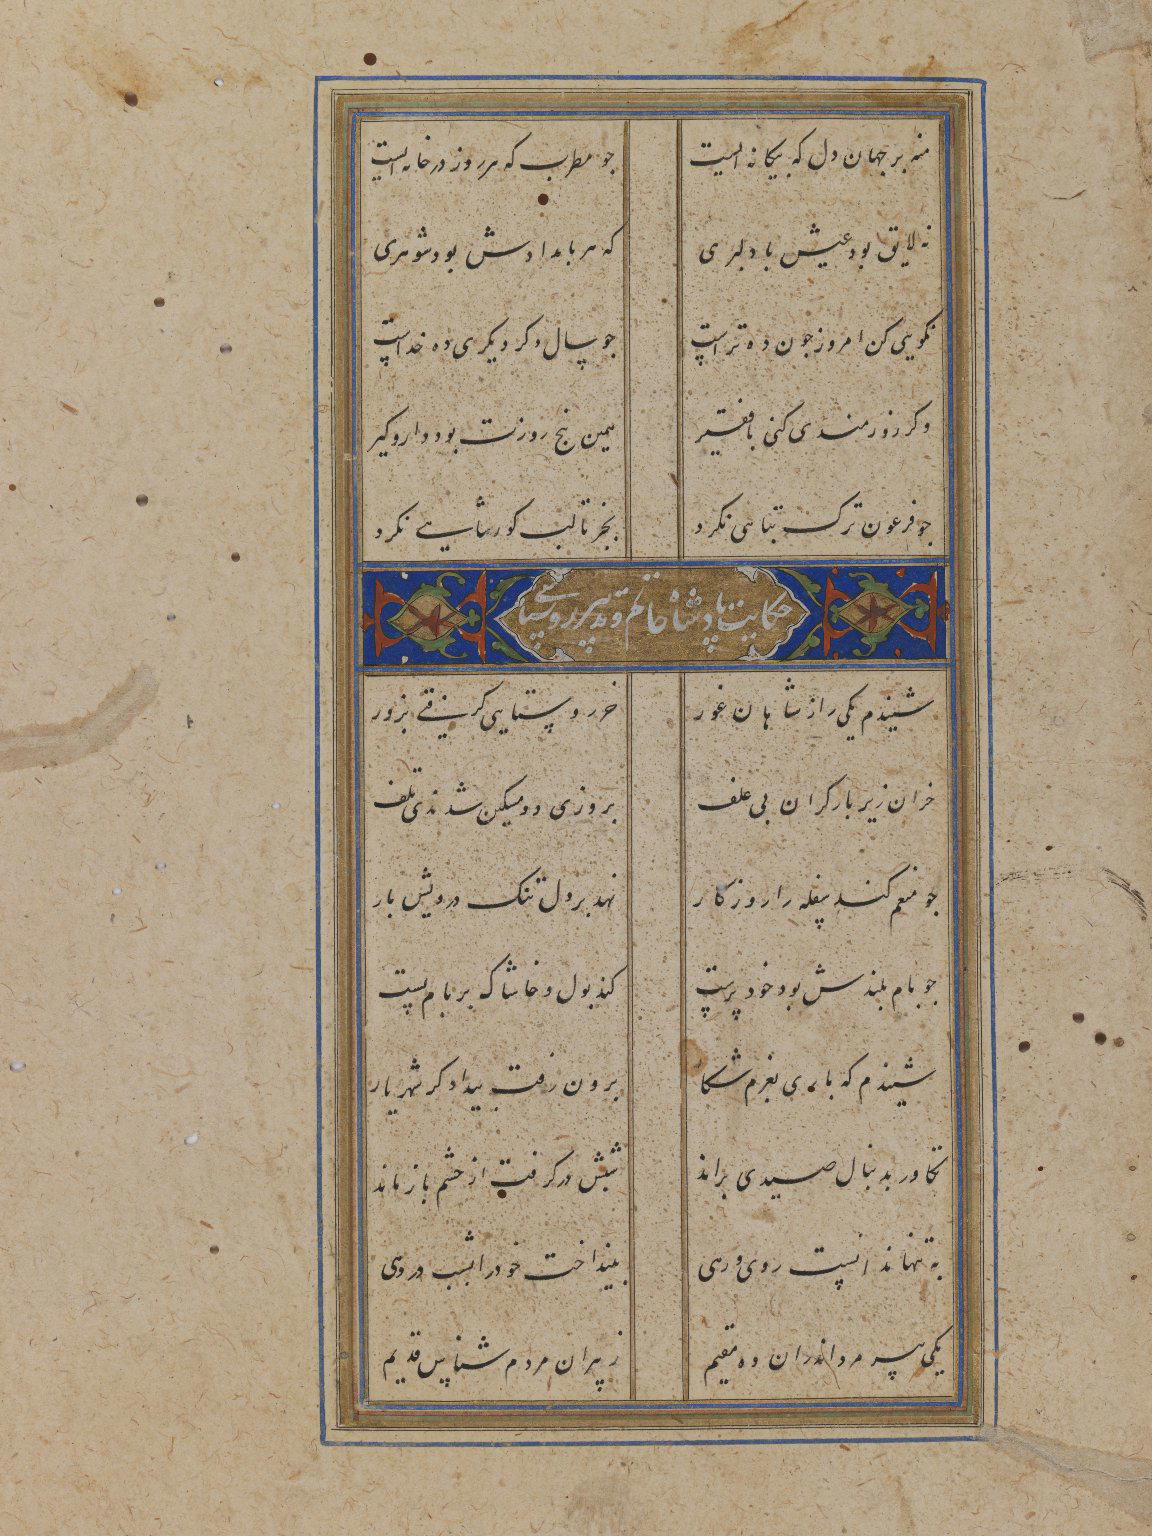 منه بر جهان دل که بیکانه ایست جو مطرب که هر روز در خانه ایست
نه لایق بود عیش با دلبری که هر بامدادش بود شوهری
نکویی کن امروز جون ده تراست جو سال دکر دیکری ده خداست
وکر زورمندی کنی با فقیر همین پنج روزت بود دار و کیر
جو فرعون ترک تباهی نکرد بجز تا لب کور شاهی نکرد
حکایت پادشاه ظالم پیر روستایی
شنیدم یکی را ز شاهان غور خر روستایی کرفتی بزور
خران زیر بار کران بی علف بروزی دو مسکین شدندی تلف
جو منعم کند سفله را روزکار نهد بر دل تنک درویش بار
جو بام بلندش بود خود پرست کند بول و خاشاک بر بام پست
شنیدم که باری بعزم شکار برون رفت بیدادکر شهریار
تکاور بدنبال صیدی براند شبش در کرفت از حشم باز ماند
به تنها ندانست روی و رهی بینداخت خود را بشب در دهی
یکی پیر مرد اندران ده مقیم ز پیران مردم شناس قدیم